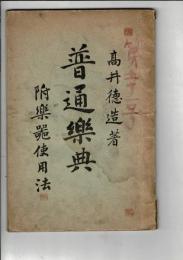 高井德造著
普通樂典
附樂器使用法